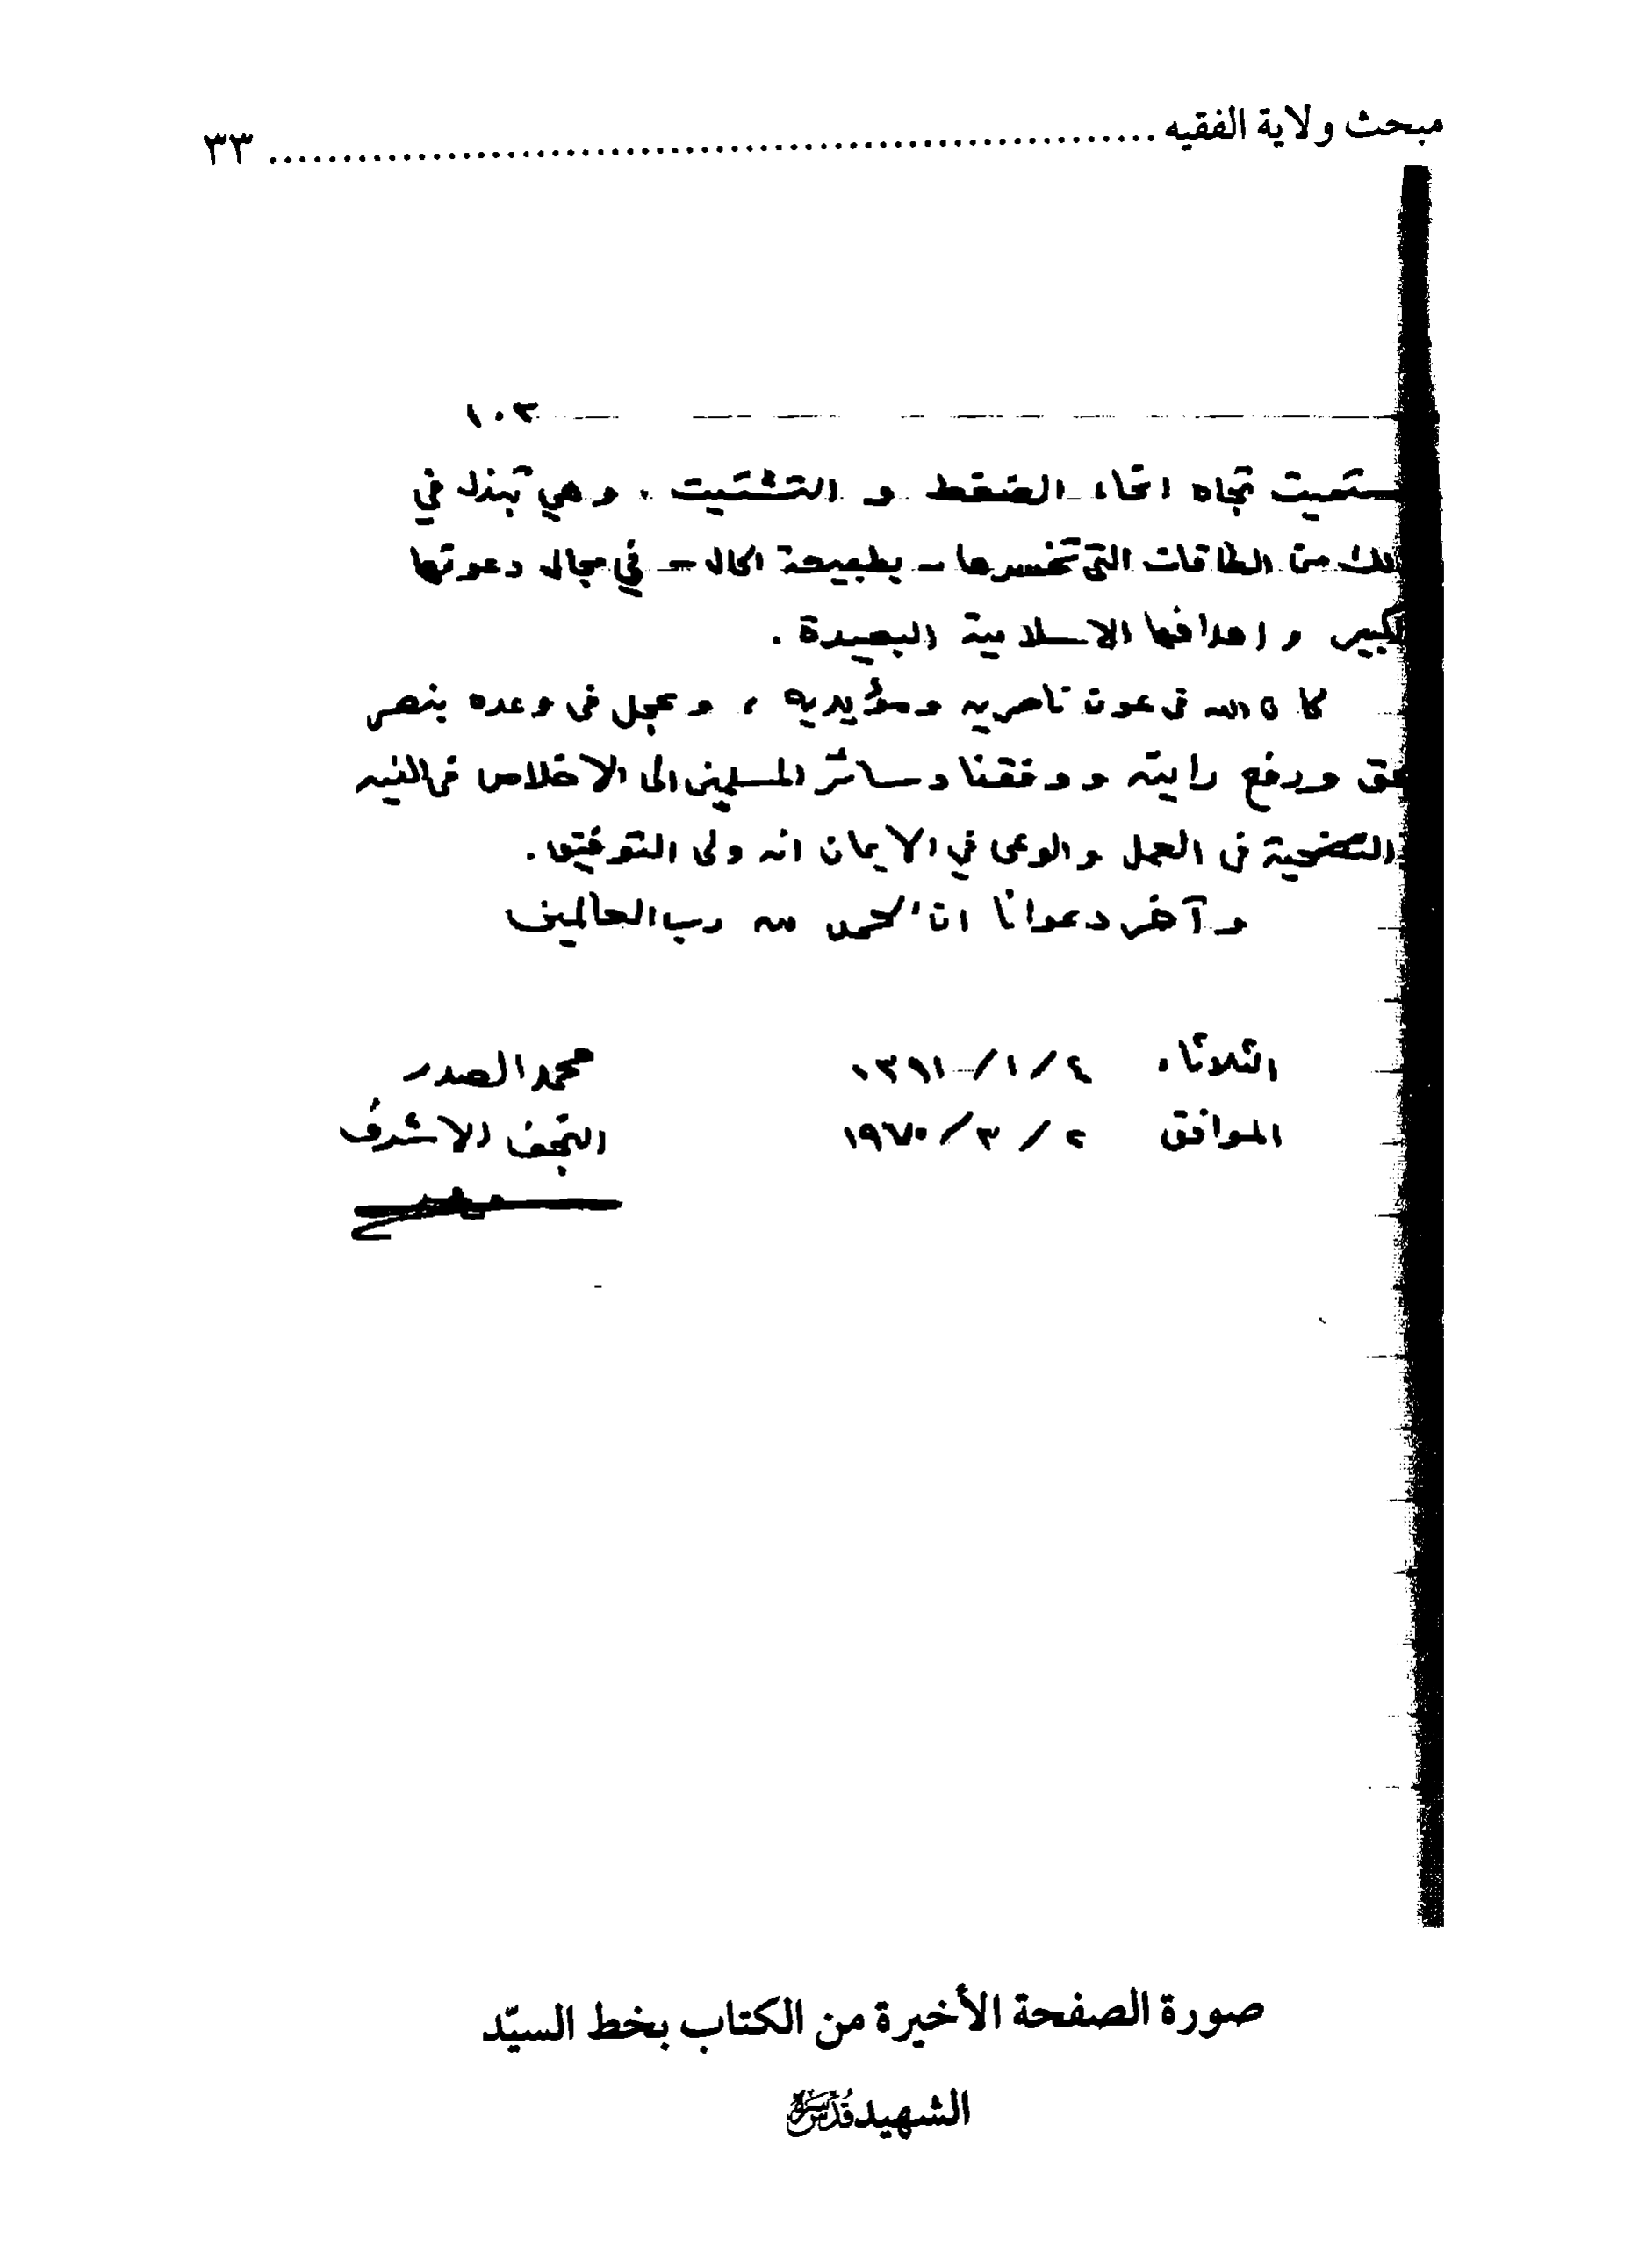 مبحث ولاية الفقيه ........................................................ ٣٣
١٠٣
ستميت تجاه انحاء الضغط و التشتيت . و هي تبذل في
ذلك من الطاقات التي تخسرها - بطبيعة الحال - في مجال دعوتها
لكبير و اهدافها الاسلامية البعيدة .
كان الله في عون ناصريه ومؤيديه ، و عجل في وعده بنصر
حق ورفع رايته ووفقنا وسائر المسلمين الى الاخلاص في النيه
التضحية في العمل والوعي في الايمان انه ولي التوفيق .
و آخر دعوانا ان الحمد لله رب العالمين
الثلاثاء ٤ / ١ / ١٣٩١ محمد الصدر
الموافق ٢ / ٣ / ١٩٧٠ النجف الاشرف
صورة الصفحة الأخيرة من الكتاب بخط السيّد
الشهيد قُدّس سرّه